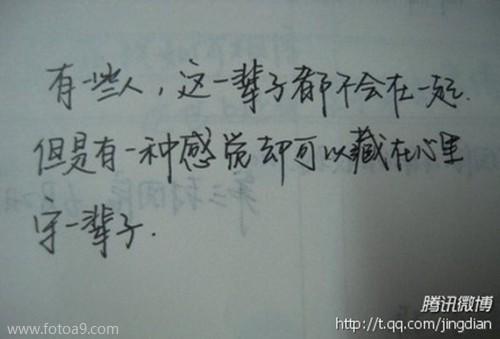 有一些人，这一辈子都不会在一起.
但是有一种感觉却可以藏在心里
守一辈子.
腾讯微博
http://t.qq.com/jingdian
www.fotoa9.com